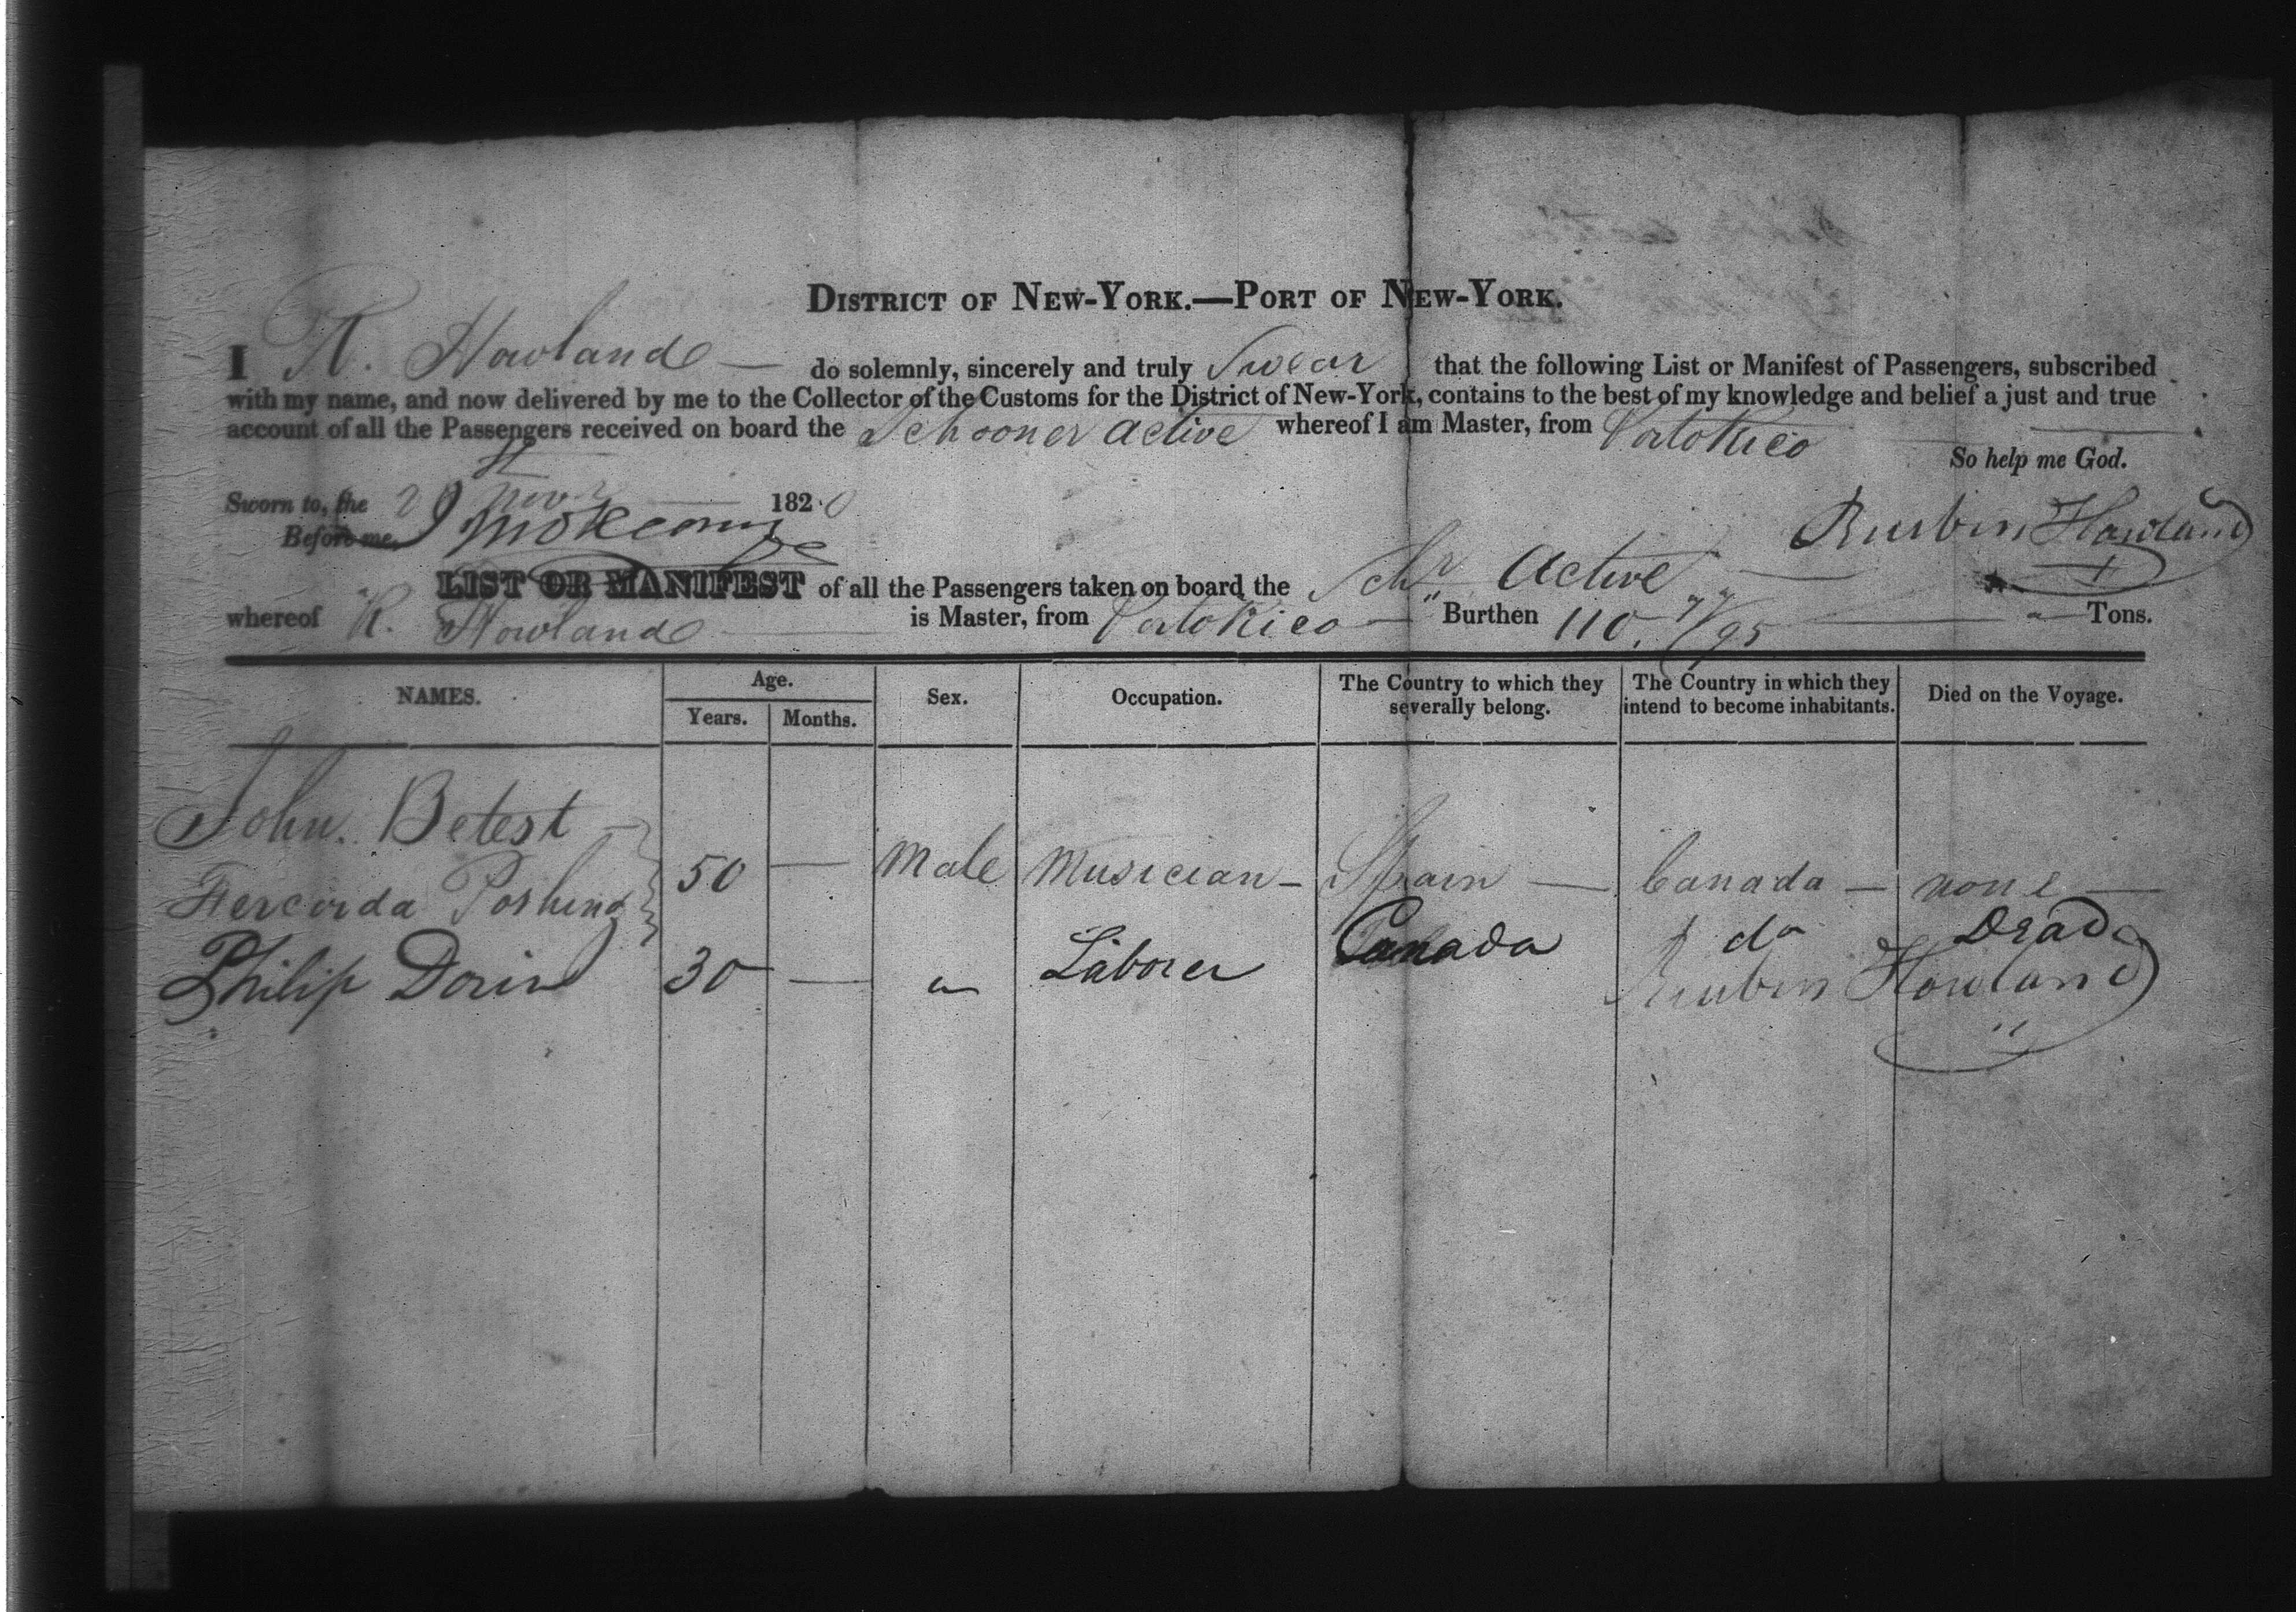 DISTRICT OF NEW-YORK.—PORT OF NEW-YORK.
I R. Howland do solemnly, sincerely and truly Swear that the following List or Manifest of Passengers, subscribed
with my name, and now delivered by me to the Collector of the Customs for the District of New-York, contains to the best of my knowledge and belief a just and true
account of all the Passengers received on board the Schooner Active whereof I am Master, from Porto Rico
So help me God.
Sworn to, the 29 Nov 1820
Before me,
Rubin Howland
LIST OR MANIFEST of all the Passengers taken on board the Schr Active
whereof R. Howland is Master, from Porto Rico Burthen 110. 77/95 Tons.
NAMES. Age. Years. Months. Sex. Occupation. The Country to which they severally belong. The Country in which they intend to become inhabitants. Died on the Voyage.
John. Betest
50 — Male Musician — Spain — Canada — none —
Philip Dorin 30 — " Laborer Canada do Dead
Rubin Howland